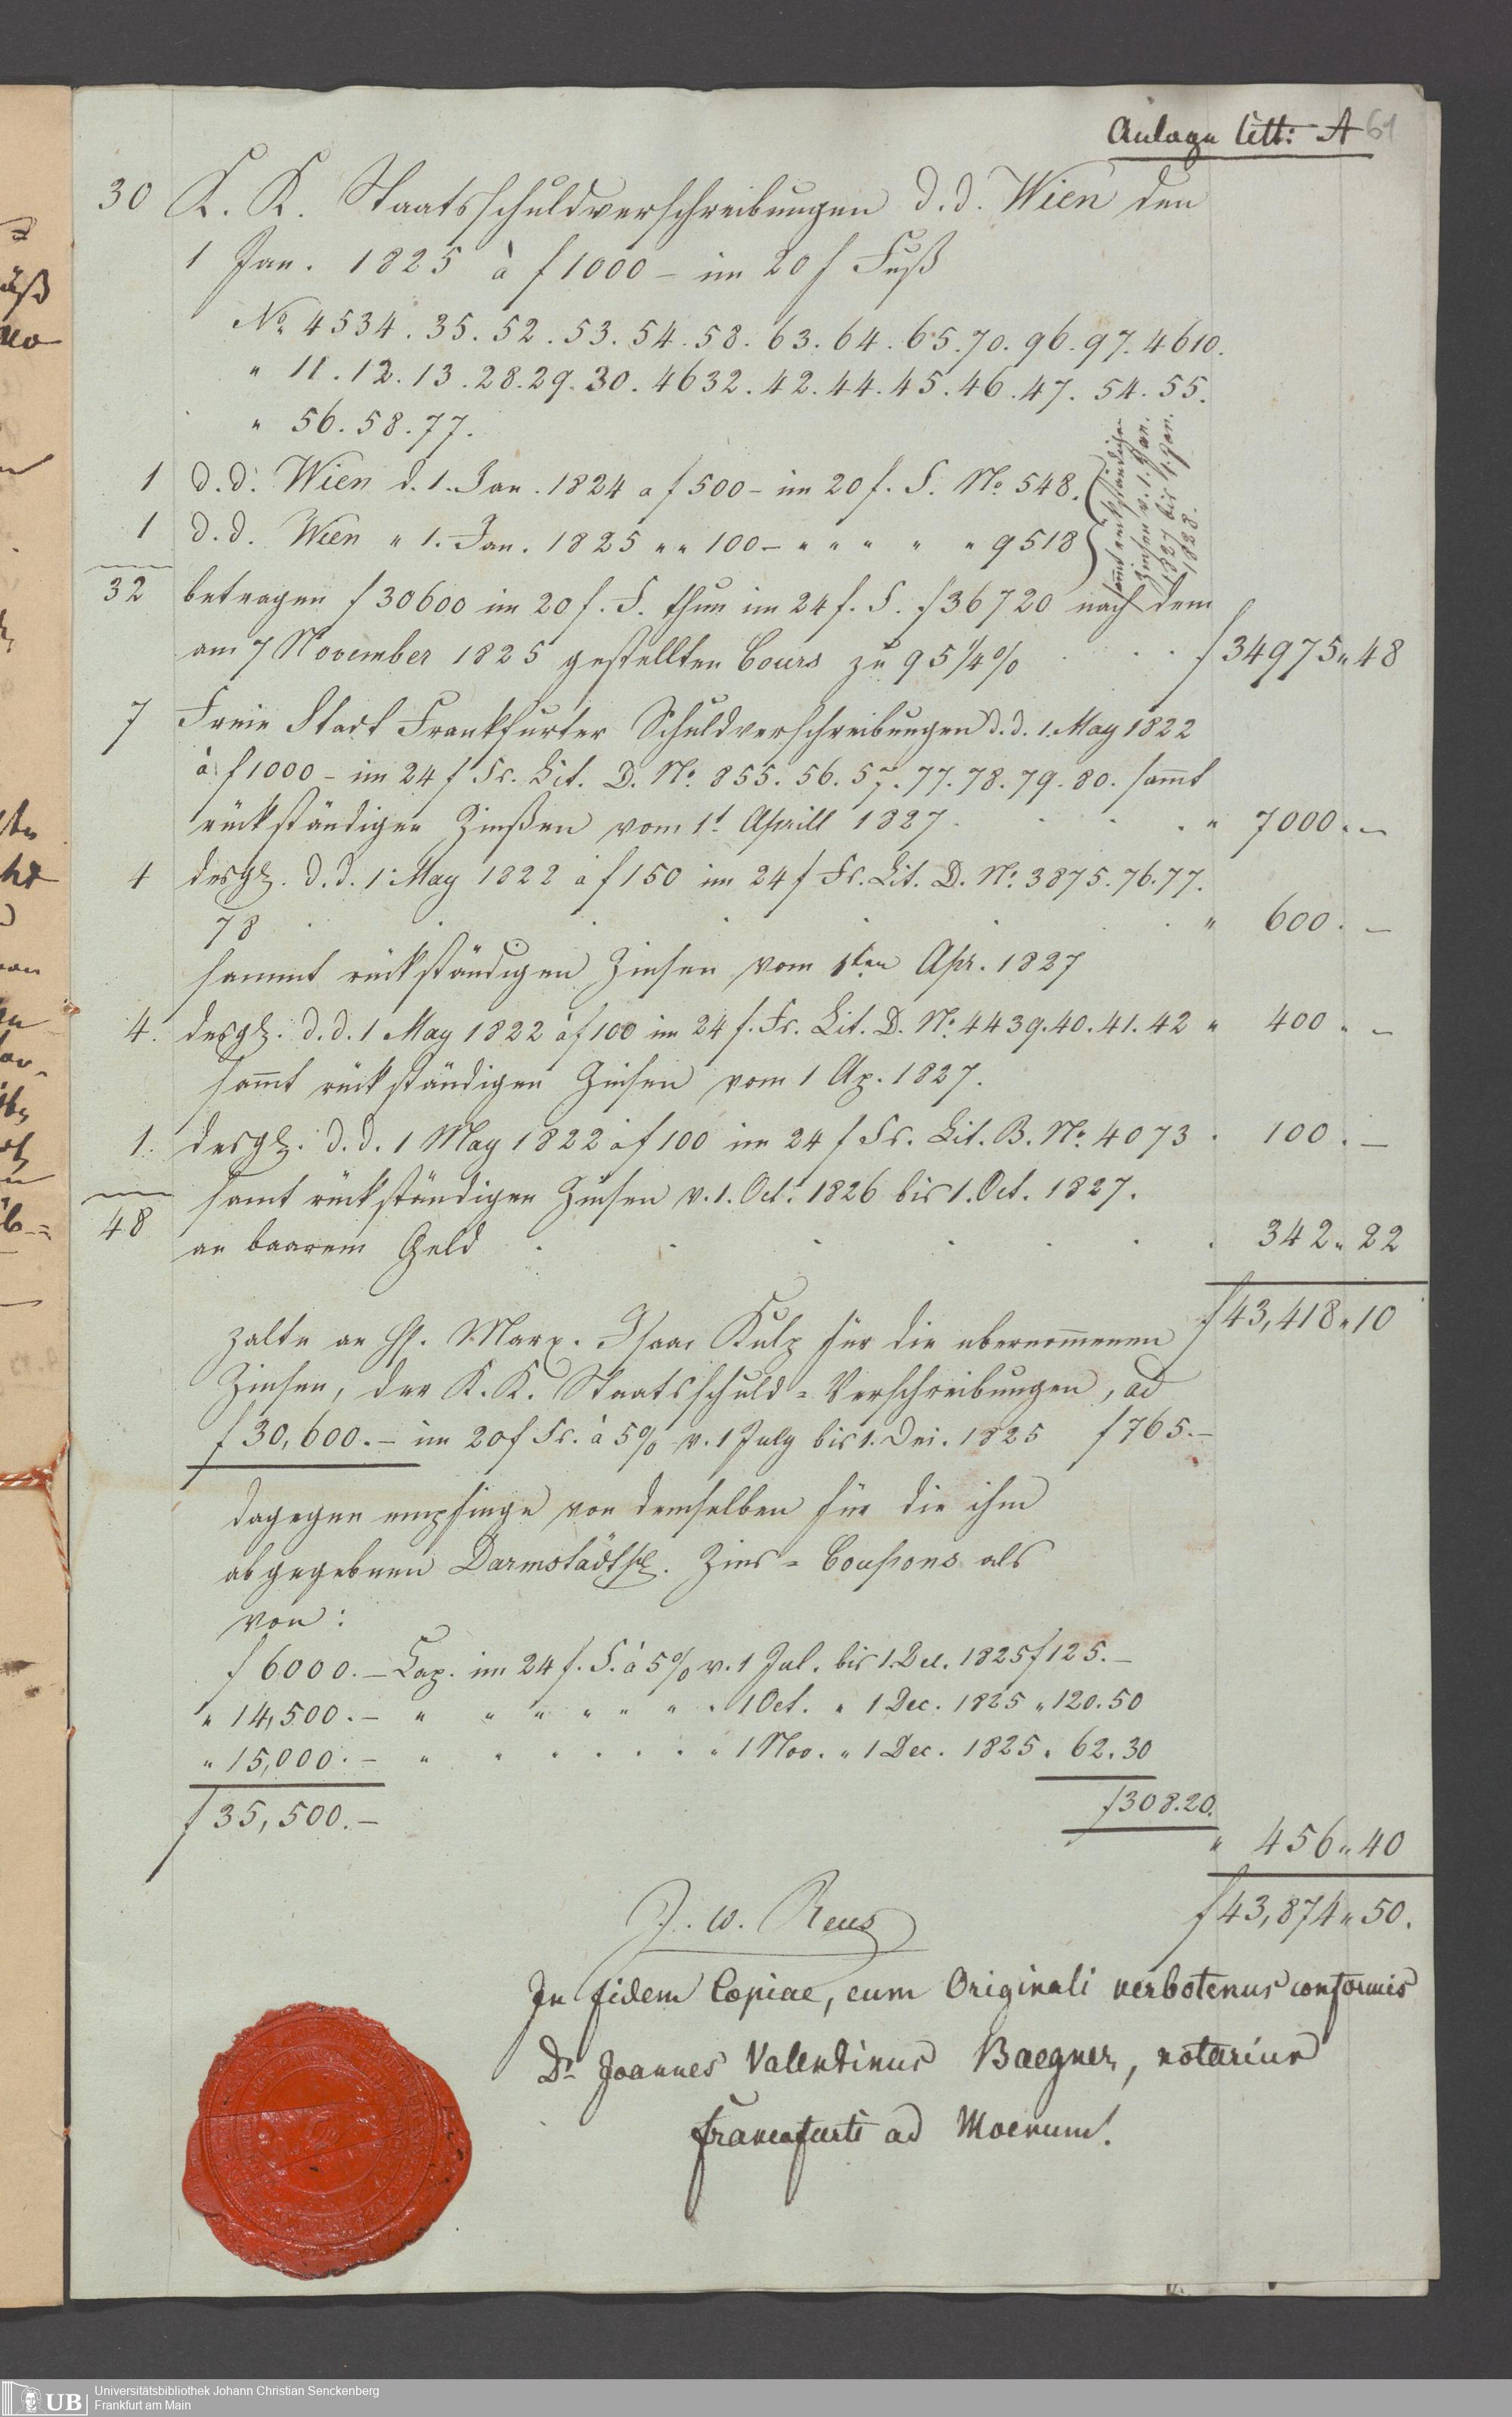 Anlage litt: A 61
30 K. K. Staatsschuldverschreibungen d. d. Wien den
1 Jan. 1825 à f 1000 – im 20 f Fuß
No. 4534. 35. 52. 53. 54. 58. 63. 64. 65. 70. 96. 97. 4610.
" 11. 12. 13. 28. 29. 30. 4632. 42. 44. 45. 46. 47. 54. 55.
" 56. 58. 77.
1 d. d. Wien d. 1. Jan. 1824 a f 500 – im 20 f. F. No. 548.
1 d. d. Wien " 1. Jan. 1825 " " 100 – " " " " " 9518
sam̄t rückständigen
Zinsen v. 1. Jan.
1827 bis 1. Jan.
1828.
32 betragen f 30600 im 20 f. F. thun im 24 f. F. f 36720 nach dem
am 7 November 1825 gestellten Cours zu 95 1/4 % f 34975 " 48
7 Freie Stadt Frankfurter Schuldverschreibungen d. d. 1. May 1822
à f 1000 – im 24 f Fs. Lit. D. No. 855. 56. 57. 77. 78. 79. 80. sam̄t
rückständigen Zinßen vom 1t Aprill 1827 . . . " 7000 " –
4 desgl. d. d. 1 May 1822 à f 150 im 24 f Fs. Lit. D. No. 3875. 76. 77.
78 . . . . . . " 600 . –
sammt rückständigen Zinsen vom 1ten Apr. 1827
4. desgl. d. d. 1 May 1822 à f 100 im 24 f. Fs. Lit. D. No. 4439. 40. 41. 42 " 400 " –
sam̄t rückständigen Zinsen vom 1 Ap. 1827.
1. desgl. d. d. 1 May 1822 à f 100 im 24 f Fs. Lit. B. No. 4073 . 100 . –
samt rückständigen Zinsen v. 1. Oct. 1826 bis 1. Oct. 1827.
48
an baarem Geld . . . . . . . 342 " 22
f 43,418 " 10
zalte an H. Marx. Isaac Kulp für die übernom̄enen
Zinsen, der K. K. Staatsschuld-Verschreibungen, ad
f 30,600. – im 20 f Fs. à 5% v. 1 July bis 1. Dec. 1825 f 765. –
dagegen empfinge von demselben für die ihm
abgegebenen Darmstädtsch. Zins-Coupons als
von:
f 6000. – Cap. im 24 f. F. à 5% v. 1 Jul. bis 1. Dec. 1825 f 125. –
" 14,500. – " " " " " " " 1 Oct. " 1 Dec. 1825 " 120. 50
" 15,000. – " " " " " " " 1 Nov. " 1 Dec. 1825 " 62. 30
f 35,500. – f 308. 20.
" 456 " 40
f 43,874 " 50.
J. W. Reus
In fidem Copiae, cum Originali verbotenus conformis
Dr. Joannes Valentinus Baegner, notarius
francofurti ad Moenum.
UB Universitätsbibliothek Johann Christian Senckenberg
Frankfurt am Main